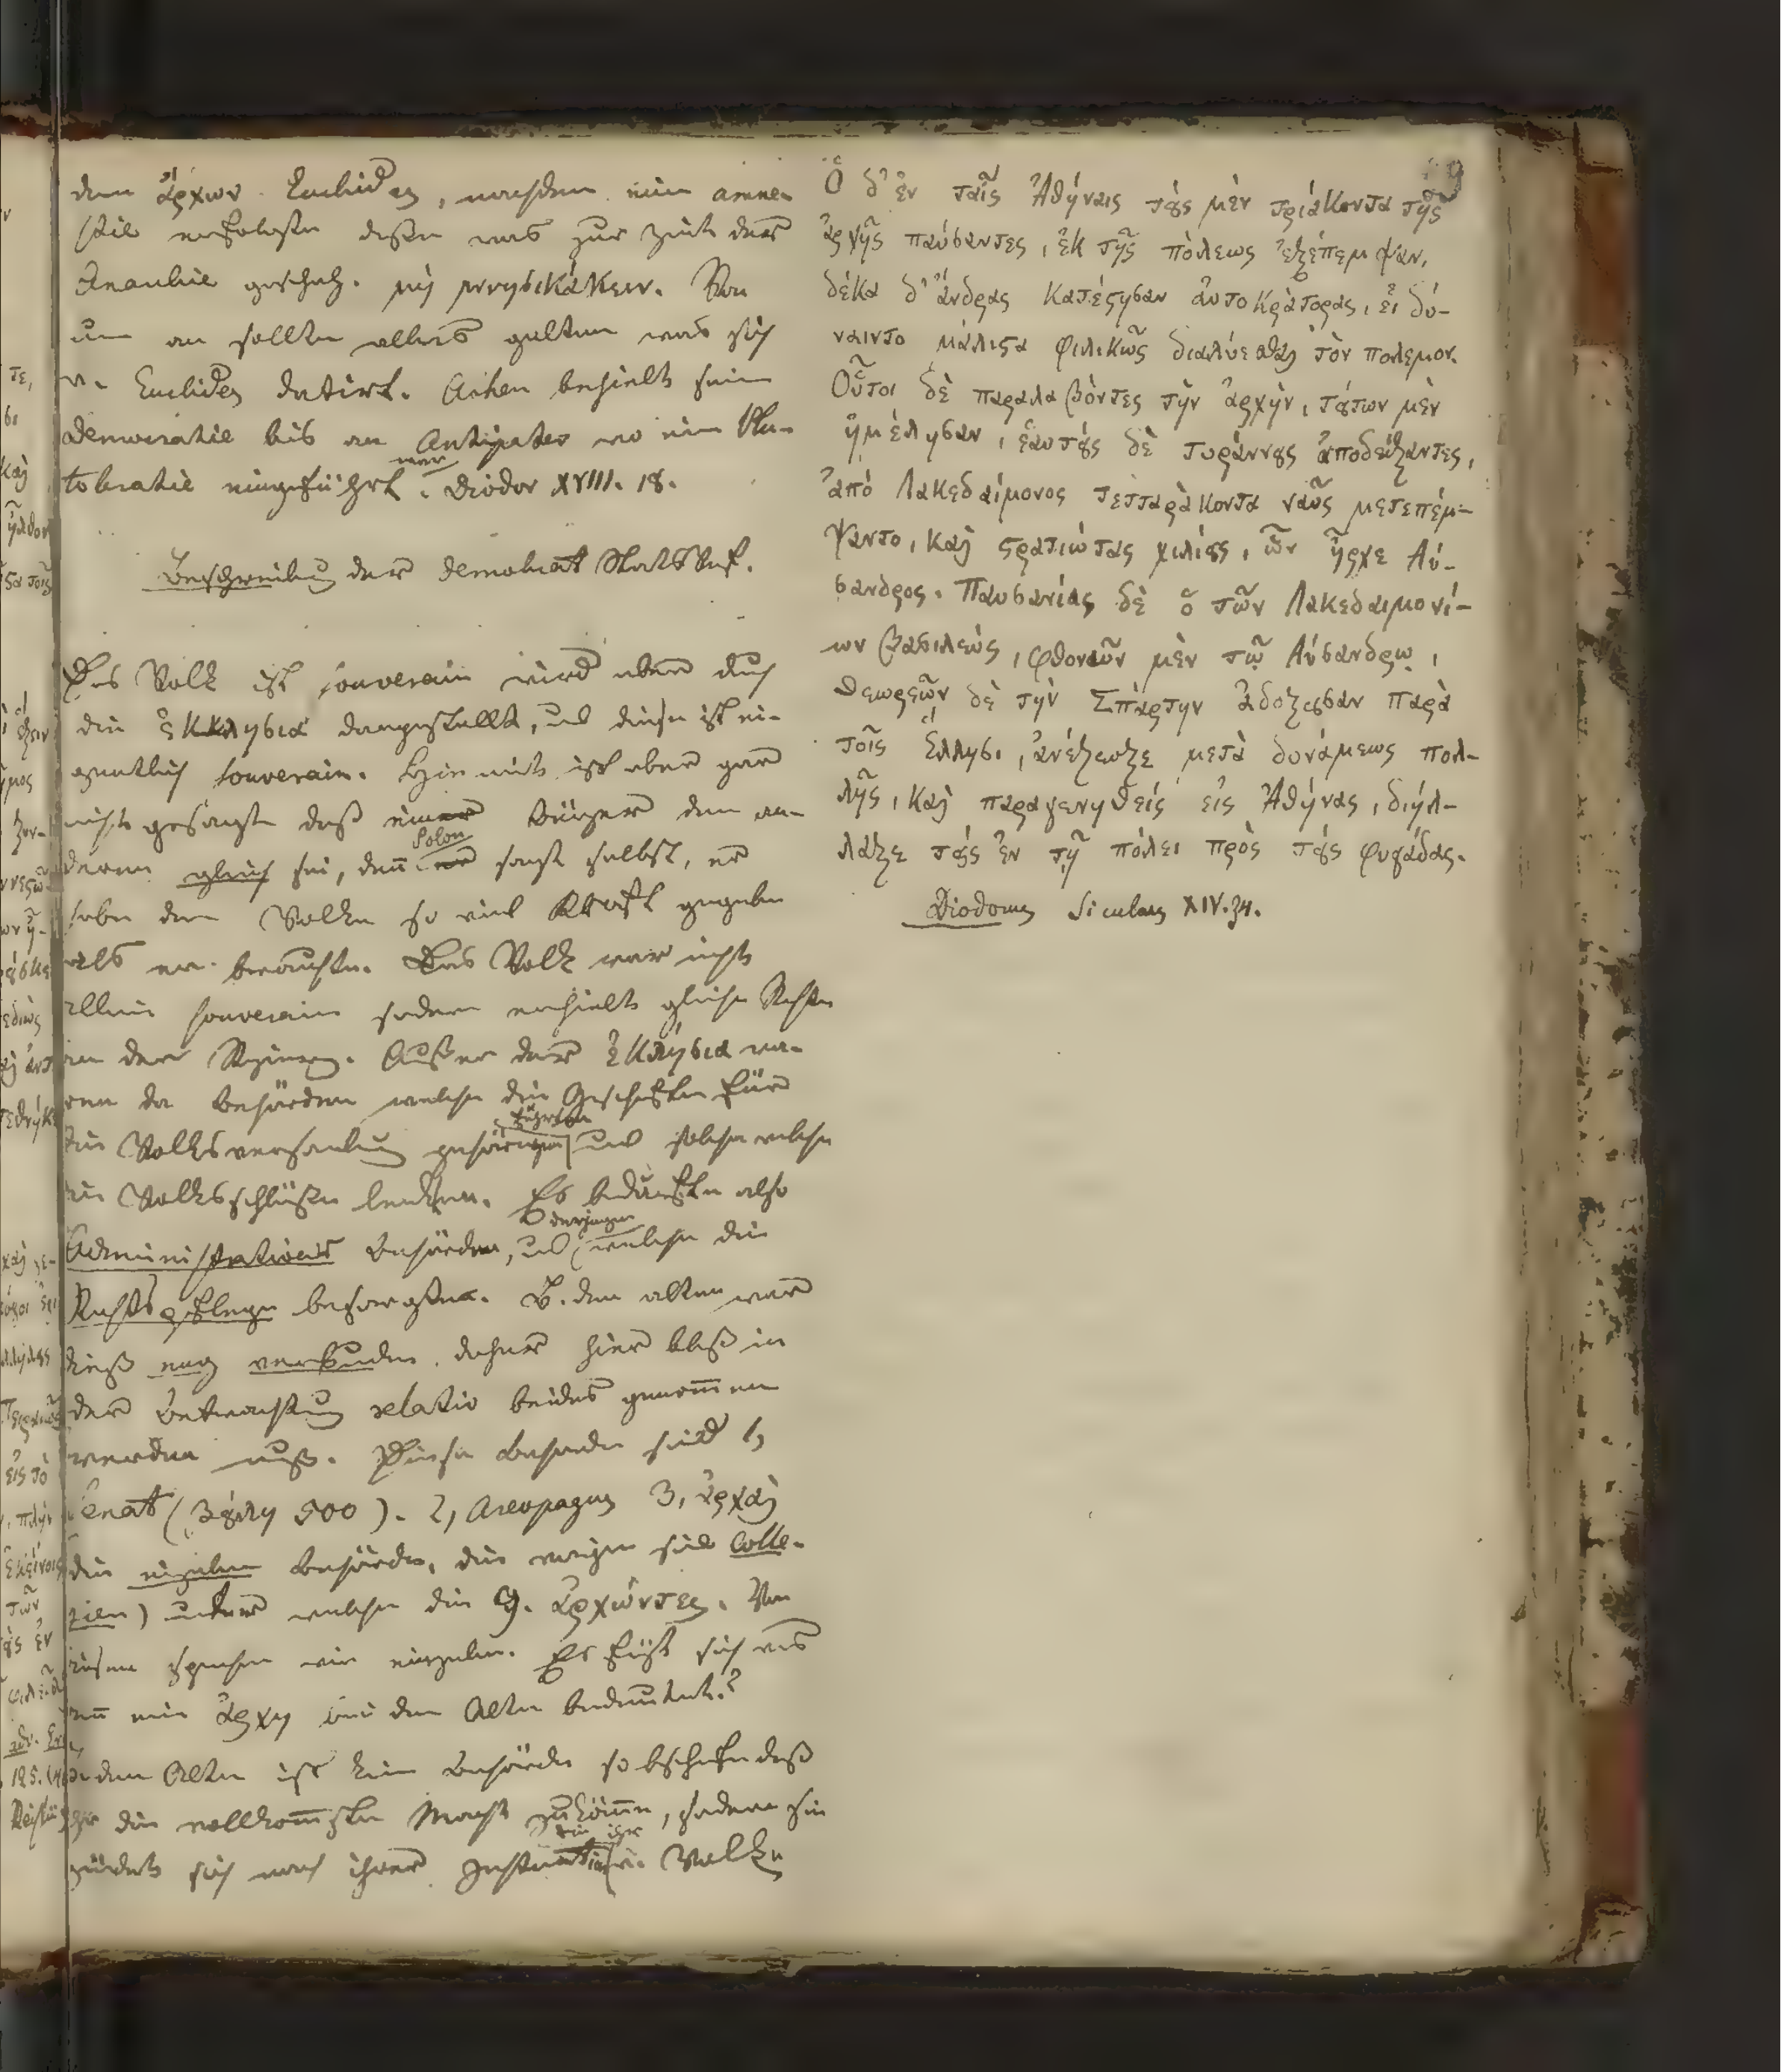 dem ἄρχων Euclides, nachdem eine amne-
stie erfolgte deßen was zur Zeit der
Anarchie geschah. μὴ μνησικάκειν. Von
nun an sollte alles gelten was sich
v. Euclides datirt. Athen behielt seine
Democratie bis an Antipater wo eine Plu-
tokratie eingeführt war. Diodor XVIII. 18.
Beschreibung der demokrat Staatsverf.
Das Volk ist souverain wird aber durch
die ἐκκλησια dargestellt, und diese ist ei-
gentlich souverain. Hiermit ist aber gar
nicht gesagt daß einer Bürger dem an-
deren gleich sei, denn er Solon sagt selbst, er
habe dem Volke so viel Kraft gegeben
als es brauchte. Das Volk war nicht
allein souverain sondern erhielt gleiche Rechte
an der Regierung. Außer der ἐκκλησια wa-
ren da Behörden welche die Geschäfte für
die Volksversamlung führten und solche welche
die Volksschlüße lenkten. Es bedurfte also
Administrations Behörden, und derjenigen welche die
Rechtspflege besorgten. B. den alten war
dieß eng verbunden daher hier bloß in
der Betrachtung relativ beides genom̄en
werden muß. Diese Behörden sind 1,
Senat (βȣλη 500). 2, Areopagus 3, ἀρχαὶ
die einzelnen Behörden, die einigen sind Colle-
gien) unter welche die 9. ἀρχώντες. Von
diesen sprechen wir einzeln. Es frägt sich was
denn eine ἀρχη bei den Alten bedeutet?
B. den Alten ist keine Behörde so beschaffen daß
ihr die vollkom̄enste Macht zukom̄e, sondern sie
richtet sich nach ihrer Instruction die ihr v. Volke
Ὁ δ' ἐν ταῖς Ἀθήναις τȣς μὲν τριάκοντα τῆς
ἀρχῆς παύσαντες, ἐκ τῆς πόλεως ἐξέπεμψαν,
δέκα δ' ἄνδρας κατέϛησαν ἀυτοκράτορας, εἰ δύ-
ναιντο μάλιϛα φιλικῶς διαλύεσθαι τὸν πολεμον.
Οὗτοι δὲ παραλαβόντες τὴν ἀρχὴν, τȣτων μὲν
ἠμέλησαν, ἑαυτȣς δὲ τυράννȣς ἀποδείξαντες,
ἀπὸ Λακεδαίμονος τετταράκοντα ναῦς μετεπέμ-
ψαντο, καὶ ϛρατιώτας χιλίȣς, ὧν ἦρχε Λύ-
σανδρος. Παυσανίας δὲ ὁ τῶν Λακεδαιμονί-
ων βασιλεὺς, φθονῶν μὲν τῷ Λύσανδρῳ,
θεωρεῶν δὲ τὴν Σπάρτην ἀδοξȣσαν παρὰ
τοῖς Ἕλλησι, ἀνέζευξε μετὰ δυνάμεως πολ-
λῆς, καὶ παραγενηθεὶς εἰς Ἀθήνας, διήλ-
λαξε τȣς ἐν τῇ πόλει πρὸς τȣς φυγάδας.
Diodorus Siculus XIV. 34.